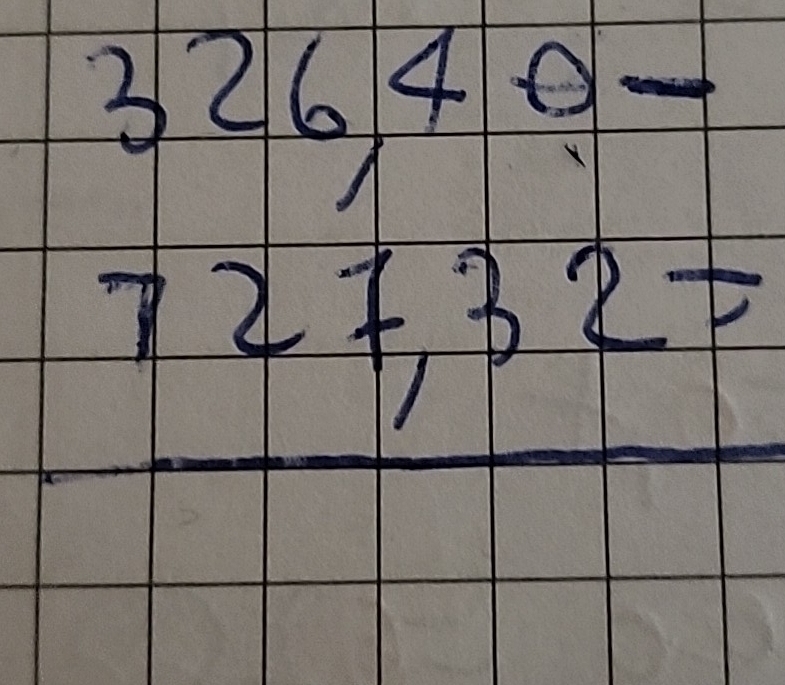 326,40-
727,32=